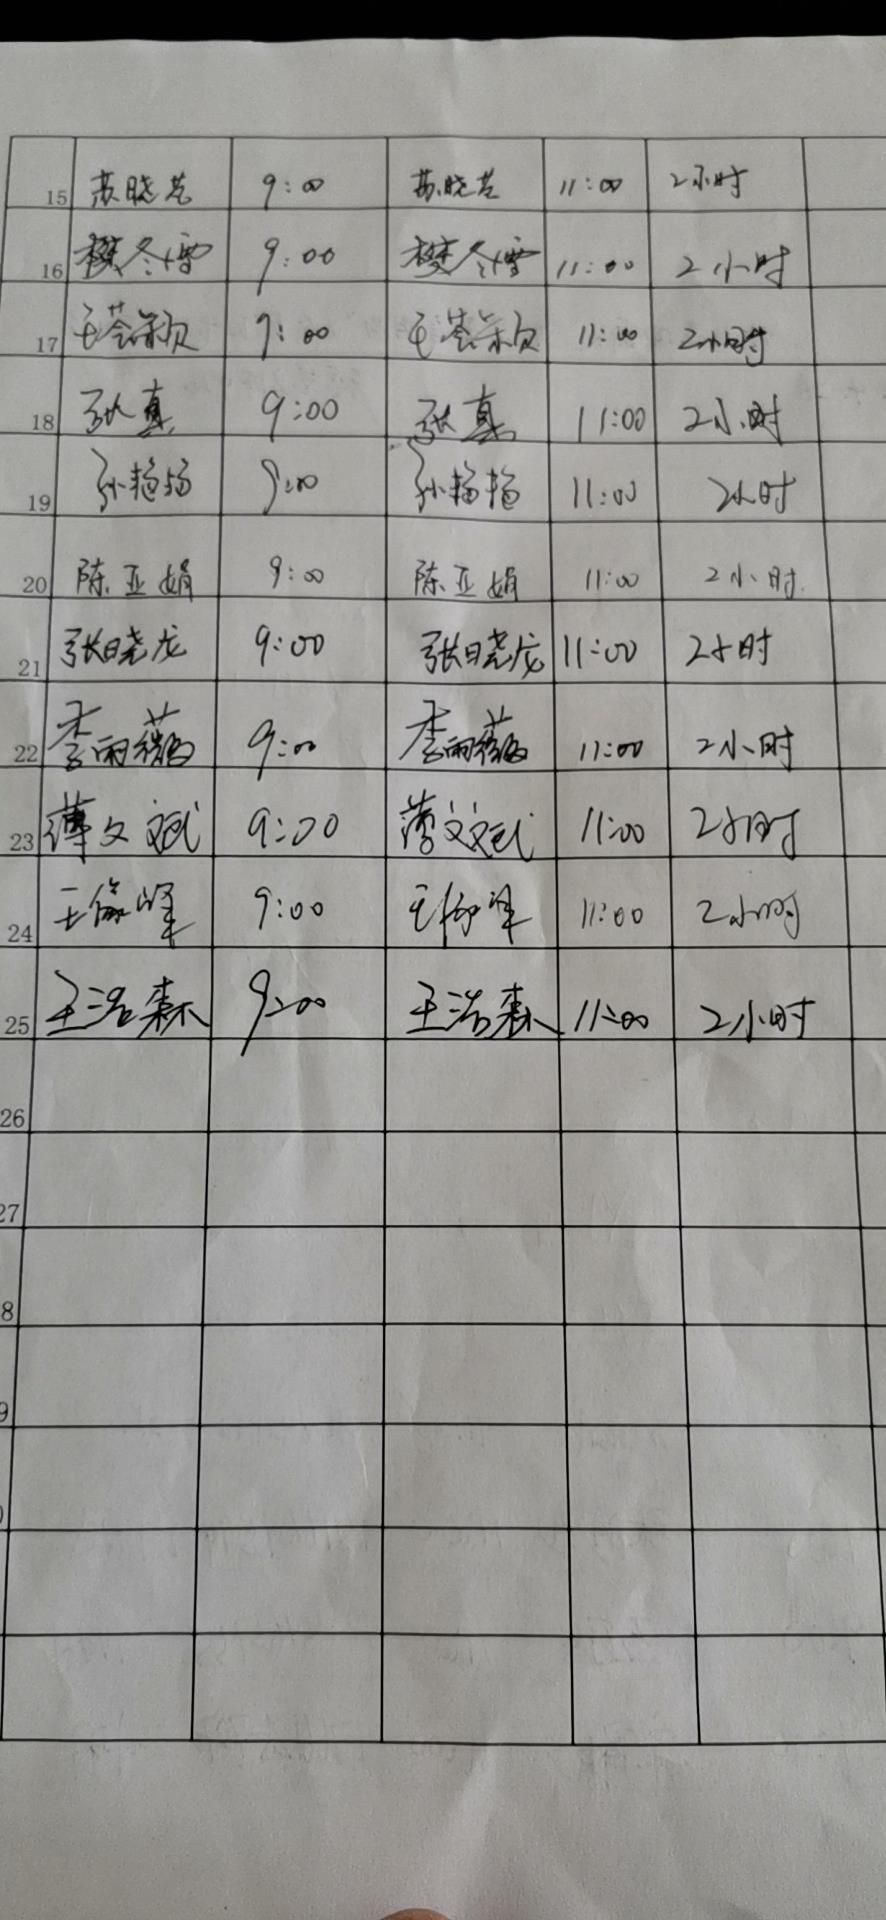 15 苏晓艺 9:00 苏晓艺 11:00 2小时
16 樊冬雪 9:00 樊冬雪 11:00 2小时
17 王荟颖 9:00 王荟颖 11:00 2小时
18 张真 9:00 张真 11:00 2小时
19 孙杨杨 9:00 孙杨杨 11:00 2小时
20 陈亚娟 9:00 陈亚娟 11:00 2小时
21 张晓龙 9:00 张晓龙 11:00 2小时
22 李雨薇 9:00 李雨薇 11:00 2小时
23 薄文斌 9:00 薄文斌 11:00 2小时
24 王俊峰 9:00 王俊峰 11:00 2小时
25 王浩森 9:00 王浩森 11:00 2小时
26
27
8
9